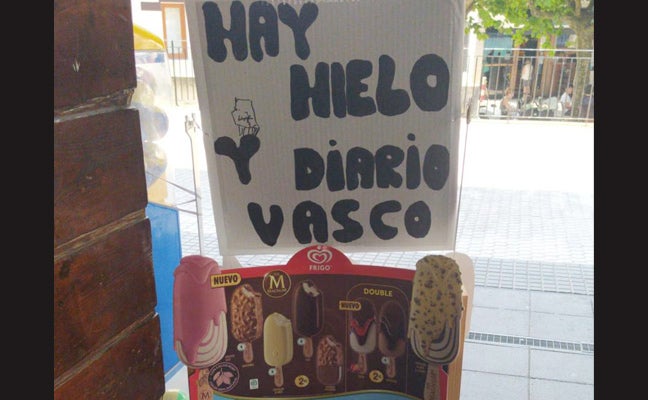 HAY
HIELO
Y DIARIO
VASCO
FRIGO
NUEVO
M
MAGNUM
DOUBLE
NUEVO
2
2